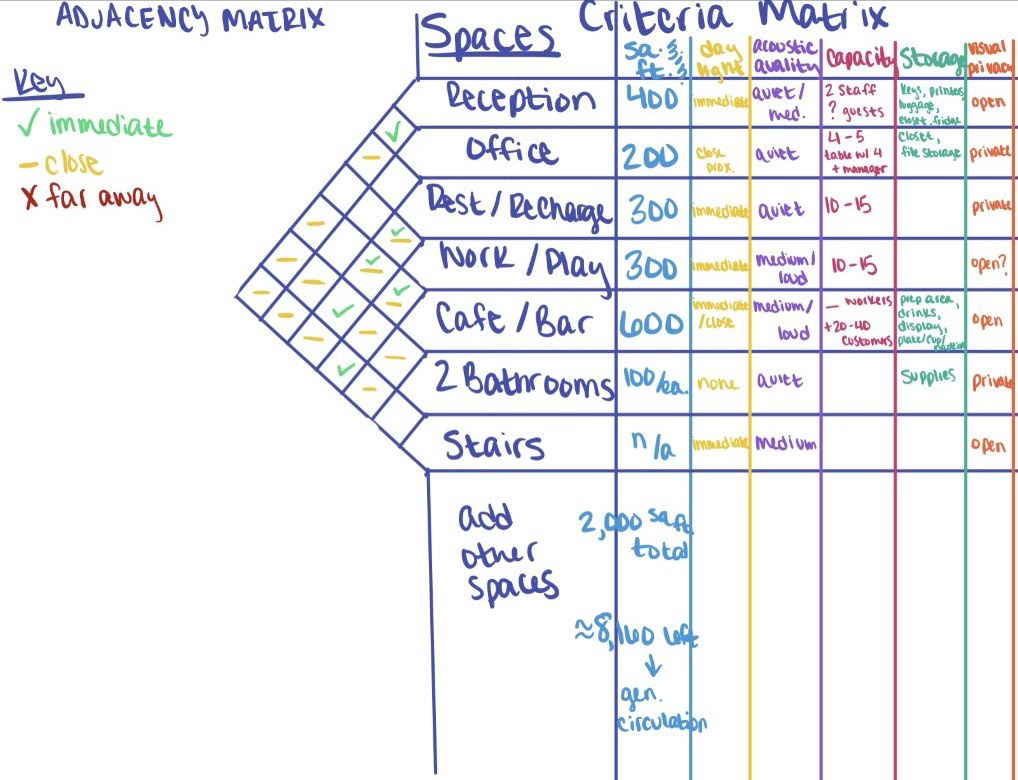 ADJACENCY MATRIX
Key
✓ immediate
– close
X far away
Criteria Matrix
Spaces
sq. ft.
day light
acoustic quality
Capacity
Storage
visual privacy
Reception
400
immediate
quiet/ med.
2 Staff
? guests
keys, printer,
luggage,
closet, fridge
open
Office
200
close prox.
quiet
4-5
table w/ 4
+ manager
closet,
file storage
private
Rest/Recharge
300
immediate
quiet
10-15
private
Work/Play
300
immediate
medium/ loud
10-15
open?
Cafe/Bar
600
immediate /close
medium/ loud
— workers
+20-40
customers
prep area,
drinks,
display,
plate/cup/
open
2 Bathrooms
100/ea.
none
quiet
Supplies
private
Stairs
n/a
immediate
medium
open
add
other
spaces
2,000 sq ft
total
≈8,160 left
↓
gen.
circulation